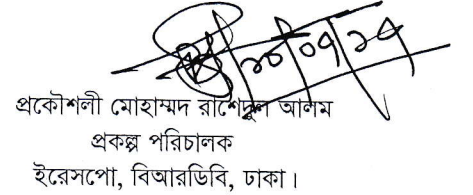 প্রকৌশলী মোহাম্মদ রাশেদুল আলম
প্রকল্প পরিচালক
ইরেসপো, বিআরডিবি, ঢাকা।